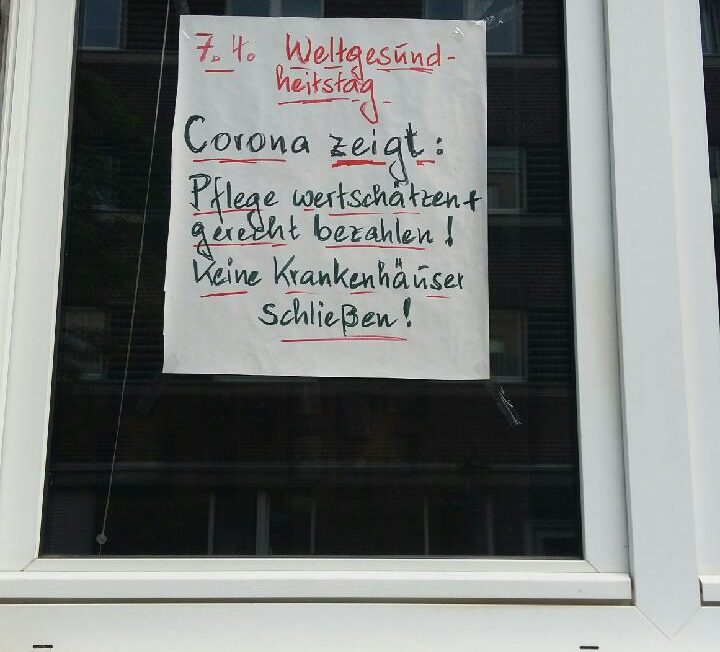 7. 4. Weltgesund-
heitstag
Corona zeigt:
Pflege wertschätzen +
gerecht bezahlen!
Keine Krankenhäuser
schließen!